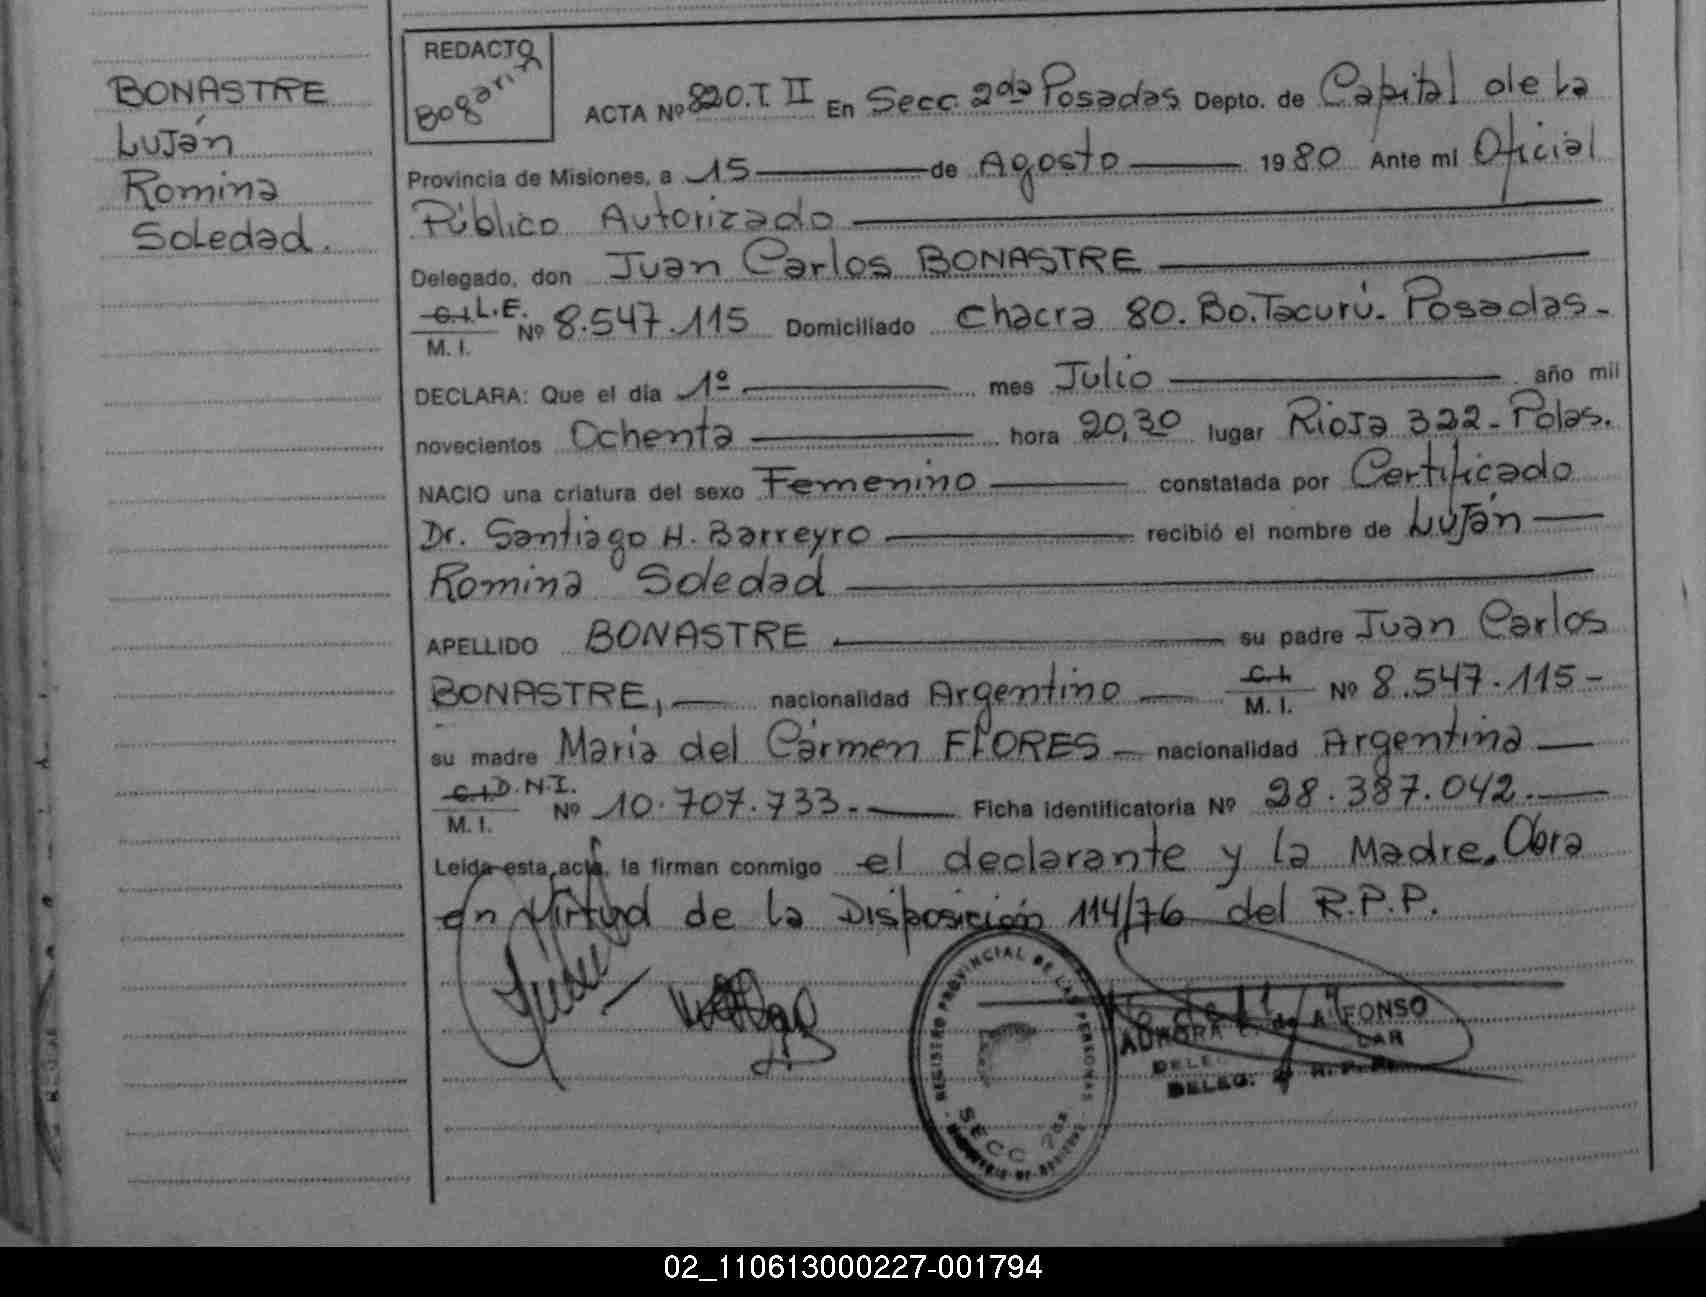 BONASTRE
Luján
Romina
Soledad.
REDACTO
Bogarin
ACTA Nº 820.T. II En Secc. 2da Posadas Depto. de Capital de la
Provincia de Misiones, a 15 de Agosto 1980 Ante mi Oficial
Público Autorizado
Delegado, don Juan Carlos BONASTRE
C.I. L.E.
M. I. Nº 8.547.115 Domiciliado Chacra 80. Bo. Tacurú. Posadas.-
DECLARA: Que el día 1º mes Julio año mil
novecientos Ochenta hora 20,30 lugar Rioja 322 - Pdas.
NACIO una criatura del sexo Femenino constatada por Certificado
Dr. Santiago H. Barreyro recibió el nombre de Luján
Romina Soledad
APELLIDO BONASTRE su padre Juan Carlos
BONASTRE, nacionalidad Argentino C.I.
M. I. Nº 8.547.115-
su madre María del Cármen FLORES nacionalidad Argentina
C.I. D.N.I.
M. I. Nº 10.707.733.- Ficha identificatoria Nº 28.387.042.-
Leída esta acta, la firman conmigo el declarante y la Madre. Obra
en virtud de la Disposición 114/76 del R.P.P.
REGISTRO PROVINCIAL DE LAS PERSONAS
SECC 2da
AURORA de ALFONSO
DELEG. R. P. P.
02_110613000227-001794